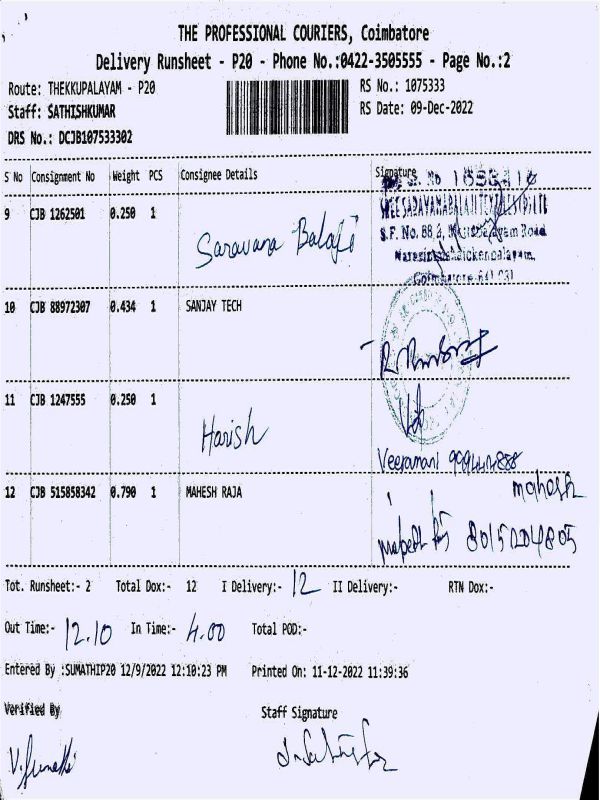 THE PROFESSIONAL COURIERS, Coimbatore
Delivery Runsheet - P20 - Phone No.:0422-3505555 - Page No.:2
Route: THEKKUPALAYAM - P20
RS No.: 1075333
Staff: SATHISHKUMAR
RS Date: 09-Dec-2022
DRS No.: DCJB107533302
S No Consignment No Weight PCS Consignee Details Signature
9 CJB 1262501 0.250 1 Saravana Balaji
S.F. No. 88
10 CJB 88972307 0.434 1 SANJAY TECH
11 CJB 1247555 0.250 1 Harish
Veeramani
12 CJB 515858342 0.790 1 MAHESH RAJA
mahesh
Tot. Runsheet:- 2 Total Dox:- 12 I Delivery:- 12 II Delivery:- RTN Dox:-
Out Time:- 12.10 In Time:- 4.00 Total POD:-
Entered By :SUMATHIP20 12/9/2022 12:10:23 PM Printed On: 11-12-2022 11:39:36
Verified By Staff Signature